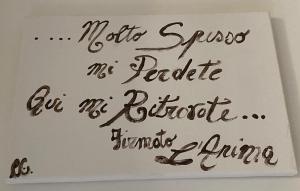 .... Molto Spesso
mi Perdete
Qui mi Ritrovate...
Firmato L'Anima